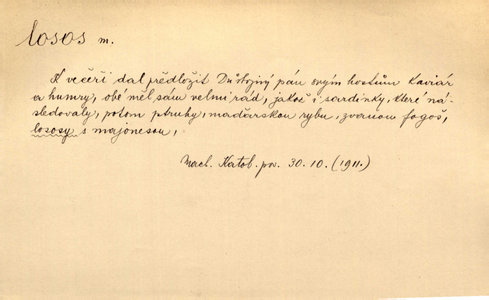 losos m.
K večeři dal předložit Důstojný pán svým hostům kaviár
a humry, obé měl sám velmi rád, jakož i sardinky, které ná-
sledovaly, potom pstruhy, maďarskou rybu, zvanou fogoš,
lososy s majonesou,
Mach. Katol. pov. 30. 10. (1911.)